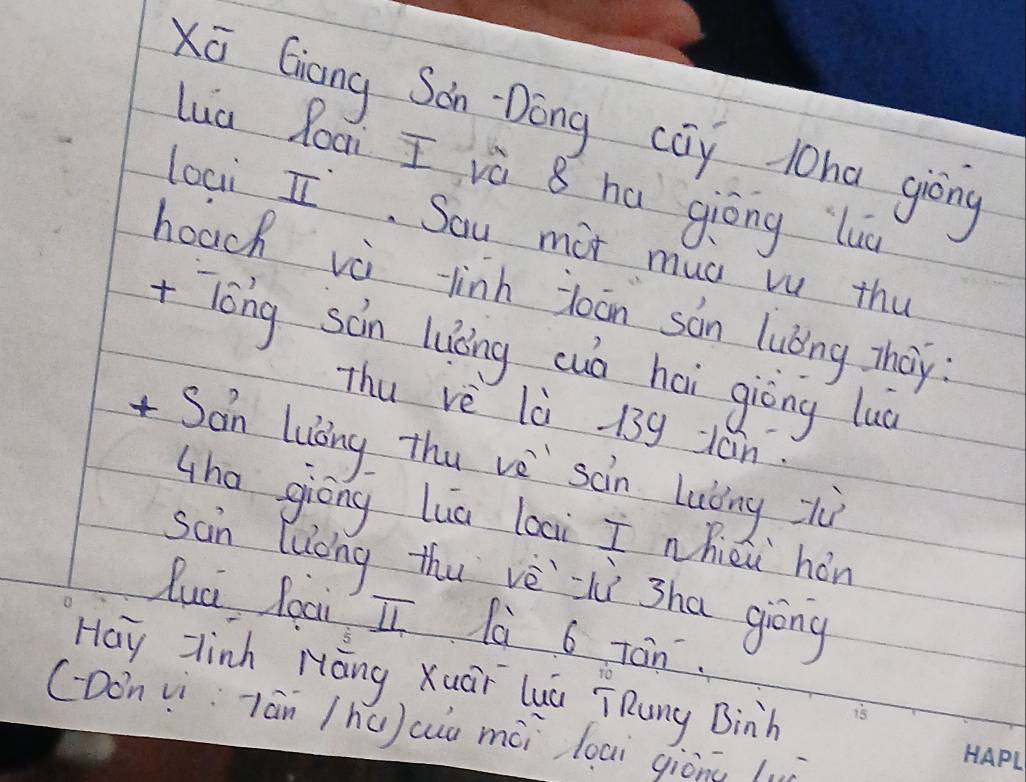 Xã Giang Sơn Đông cấy 10ha giống
lúa loại I và 8 ha giống lúa
loại II. Sau một mùa vụ thu
hoạch và tính toán sản lượng thấy:
+ Tổng sản lượng của hai giống lúa
thu về là 139 tấn.
+ Sản lượng thu về sản lượng từ
4ha giống lúa loại I nhiều hơn
sản lượng thu về từ 3ha giống
lúa loại II là 6 tấn.
Hãy tính Năng xuất lúa TRung Bình
(Đơn vị: Tấn /ha) của mỗi loại giống
0 5 10 15
HAPL